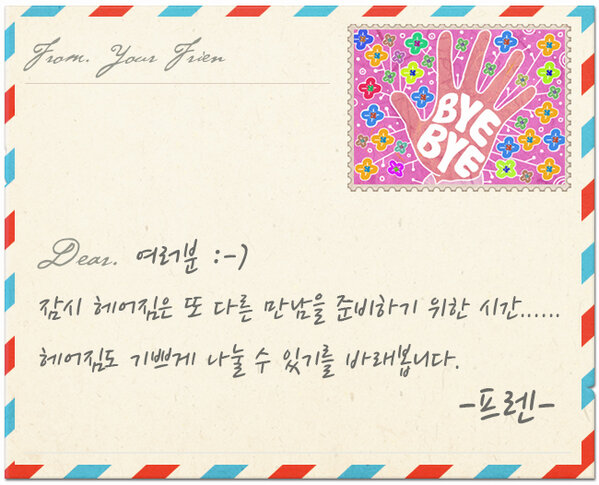 From. Your Frien
BYE
BYE
Dear. 여러분 :-)
잠시 헤어짐은 또 다른 만남을 준비하기 위한 시간......
헤어짐도 기쁘게 나눌 수 있기를 바래봅니다.
-프렌-